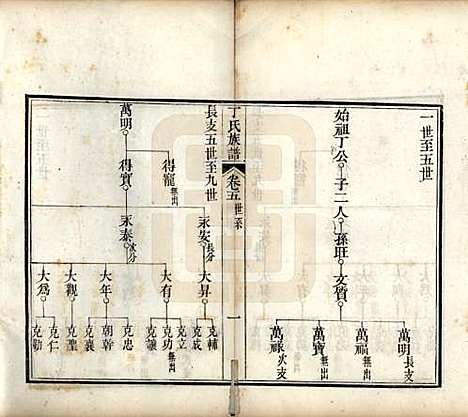 一世至五世
始祖丁公 子二人 孫旺 文質
萬明長支
萬福無出
萬寶無出
萬祿次支
丁氏族譜 卷五 世系 一
長支五世至九世
萬明 得寵無出
得寶
永安長分
永泰次分
大昇 大有 大年 大觀 大爲
克輔 克成 克立無出 克功 克讓 克忠 朝幹 克襄 克聖 克仁 克勤